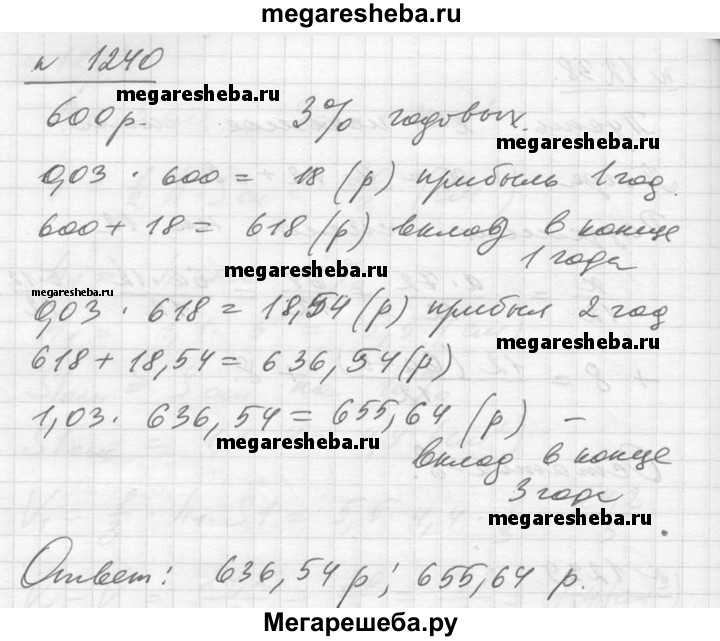 megaresheba.ru
N 1240
megaresheba.ru
600р. 3% годовых.
megaresheba.ru
0,03 · 600 = 18 (р) прибыль 1 год.
600 + 18 = 618 (р) вклад в конце
1 года
megaresheba.ru
megaresheba.ru
0,03 · 618 = 18,54 (р) прибыл 2 год
megaresheba.ru
618 + 18,54 = 636,54 (р)
1,03 · 636,54 = 655,64 (р) –
megaresheba.ru
вклад в конце
3 года
megaresheba.ru
Ответ: 636,54 р; 655,64 р.
Мегарешеба.ру